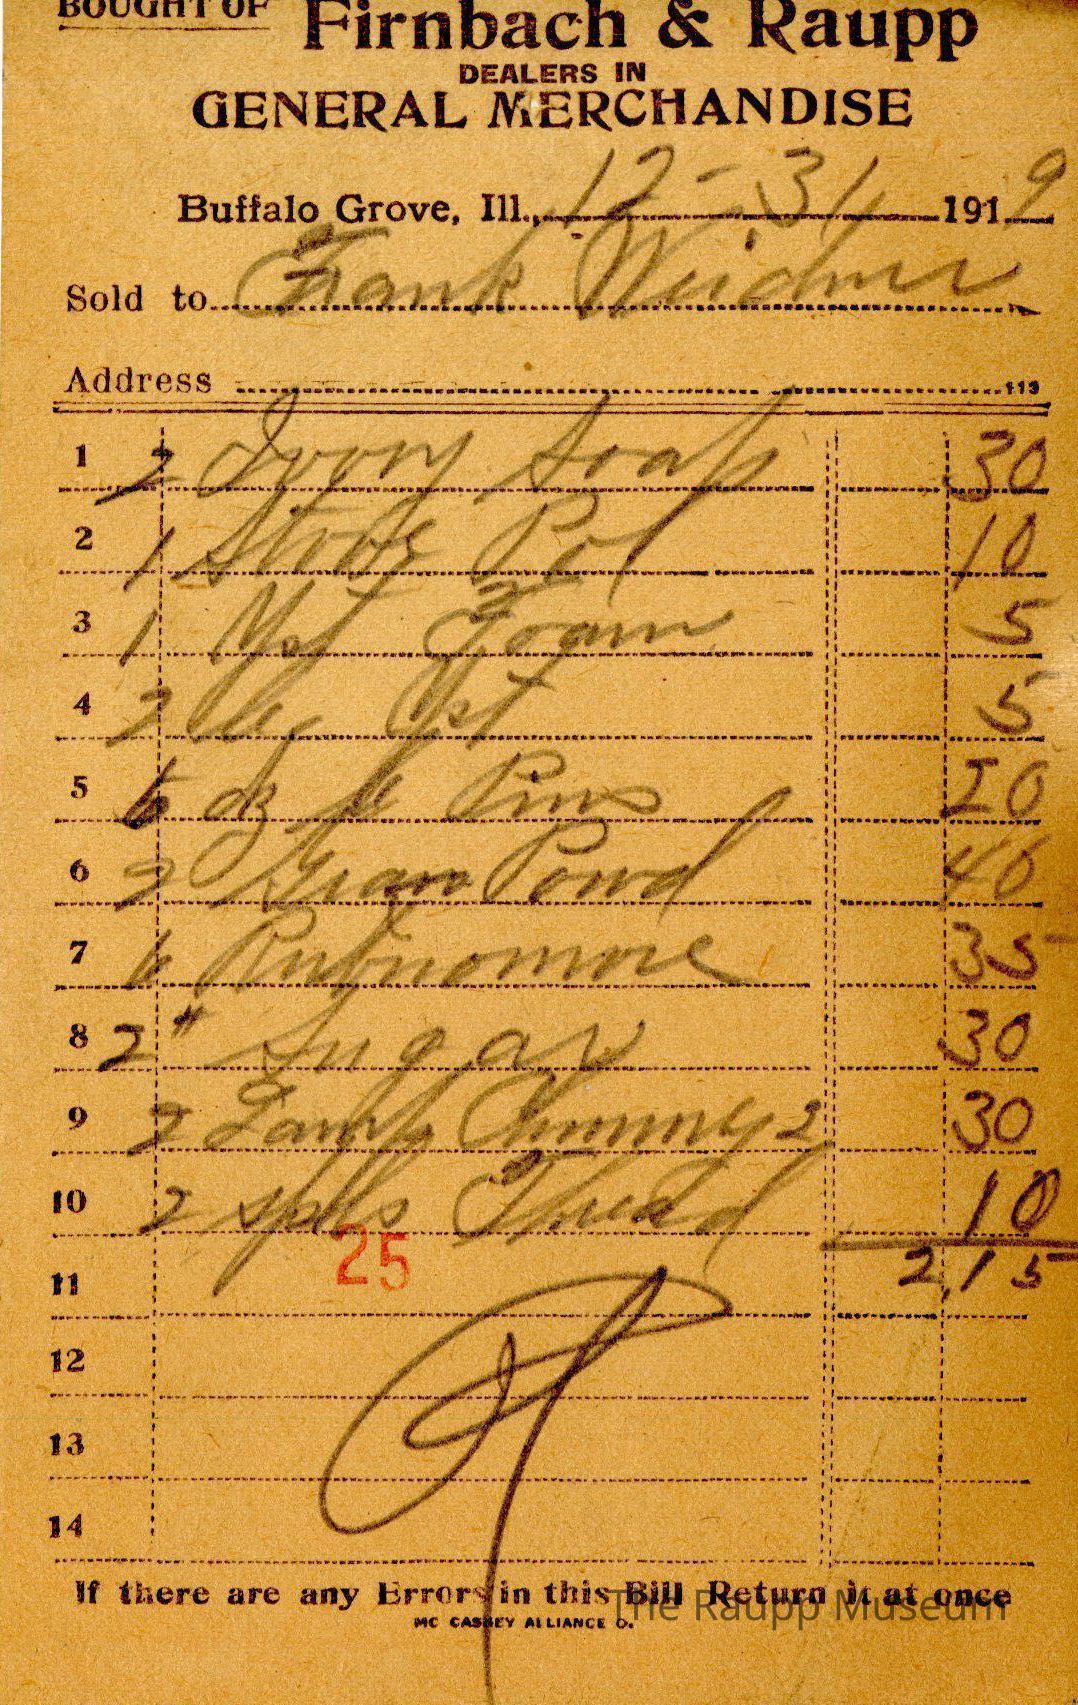 BOUGHT OF Firnbach & Raupp
DEALERS IN
GENERAL MERCHANDISE
Buffalo Grove, Ill., 12-31 1919
Sold to Frank Weidner
Address
113
1 2 Ivory Soap 30
2 1 Stove Pol 10
3 1 Yst Foam 5
4 2 Yst 5
5 6 dz Pins 20
6 2 Powd 40
7 6 Rubnomore 35
8 2 # Sugar 30
9 2 Lamp Chimneys 2 30
10 2 spls Thread 10
25
11 2,15
12
13
14
If there are any Errors in this Bill Return it at once
MC CASKEY ALLIANCE O.
The Raupp Museum